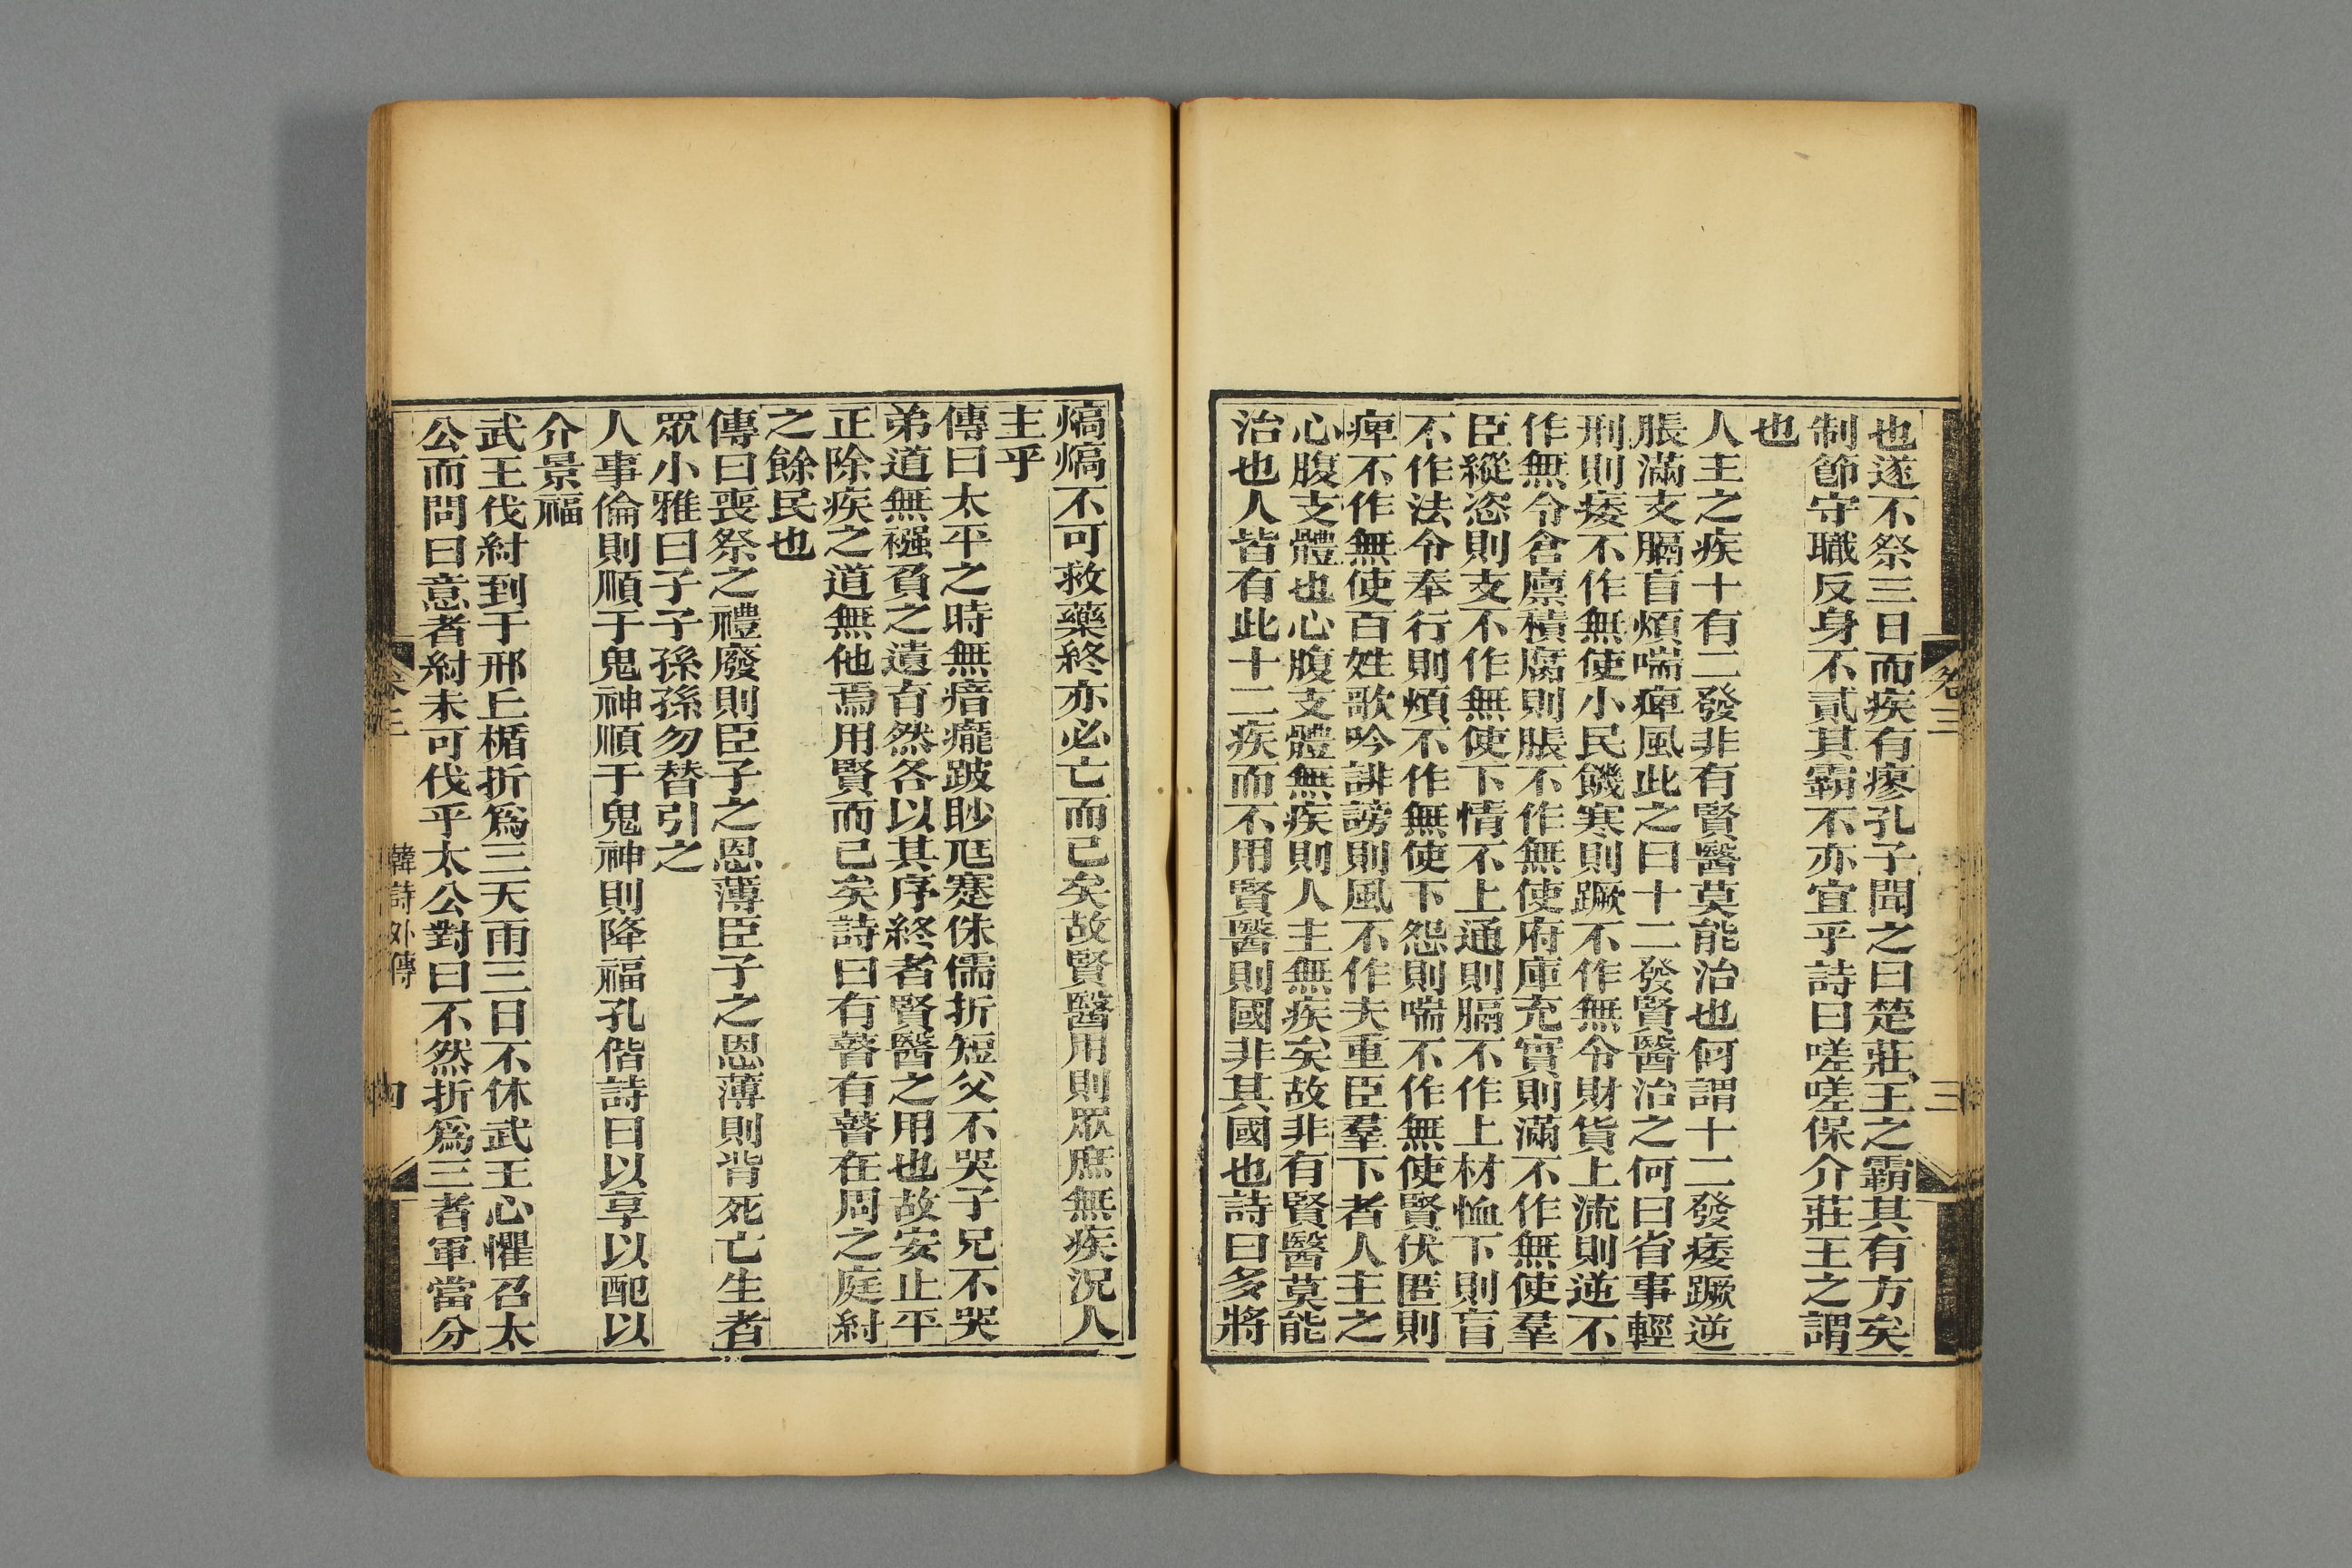 也遂不祭三日而疾有瘳孔子聞之曰楚莊王之霸其有方矣
制節守職反身不貳其霸不亦宜乎詩曰嗟嗟保介莊王之謂
也
人主之疾十有二發非有賢醫莫能治也何謂十二發痿蹶逆
脹滿支膈盲煩喘痺風此之曰十二發賢醫治之何曰省事輕
刑則痿不作無使小民饑寒則蹶不作無令財貨上流則逆不
作無令倉廪積腐則脹不作無使府庫充實則滿不作無使羣
臣縱恣則支不作無使下情不上通則膈不作上材恤下則盲
不作法令奉行則煩不作無使下怨則喘不作無使賢伏匿則
痺不作無使百姓歌吟誹謗則風不作夫重臣羣下者人主之
心腹支體也心腹支體無疾則人主無疾矣故非有賢醫莫能
治也人皆有此十二疾而不用賢醫則國非其國也詩曰多將
卷三
三
熇熇不可救藥終亦必亡而已矣故賢醫用則眾庶無疾況人
主乎
傳曰太平之時無瘖癃跛眇尩蹇侏儒折短父不哭子兄不哭
弟道無襁負之遺育然各以其序終者賢醫之用也故安止平
正除疾之道無他焉用賢而已矣詩曰有瞽有瞽在周之庭紂
之餘民也
傳曰喪祭之禮廢則臣子之恩薄臣子之恩薄則背死亡生者
眾小雅曰子子孫孫勿替引之
人事倫則順于鬼神順于鬼神則降福孔偕詩曰以享以配以
介景福
武王伐紂到于邢丘楯折爲三天雨三日不休武王心懼召太
公而問曰意者紂未可伐乎太公對曰不然折爲三者軍當分
卷三
韓詩外傳
四